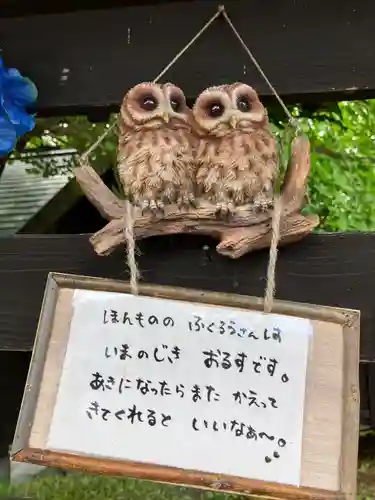 ほんものの ふくろうさんは
いまのじき おるすです。
あきになったらまた かえって
きてくれると いいなぁ〜。